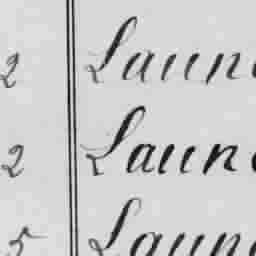 2 Laun
2 Laun
5 Laun